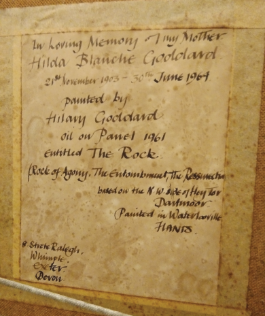 In Loving Memory of my Mother
Hilda Blanche Goddard
21st November 1903 - 30th June 1964
painted by
Hilary Goddard
oil on Panel 1961
entitled The Rock
(Rock of Agony, The Entombment, The
based on the N.W. side of Hey Tor
Dartmoor
(Painted in Waterlooville
HANTS
Strete Ralegh,
Whimple,
Exeter
Devon